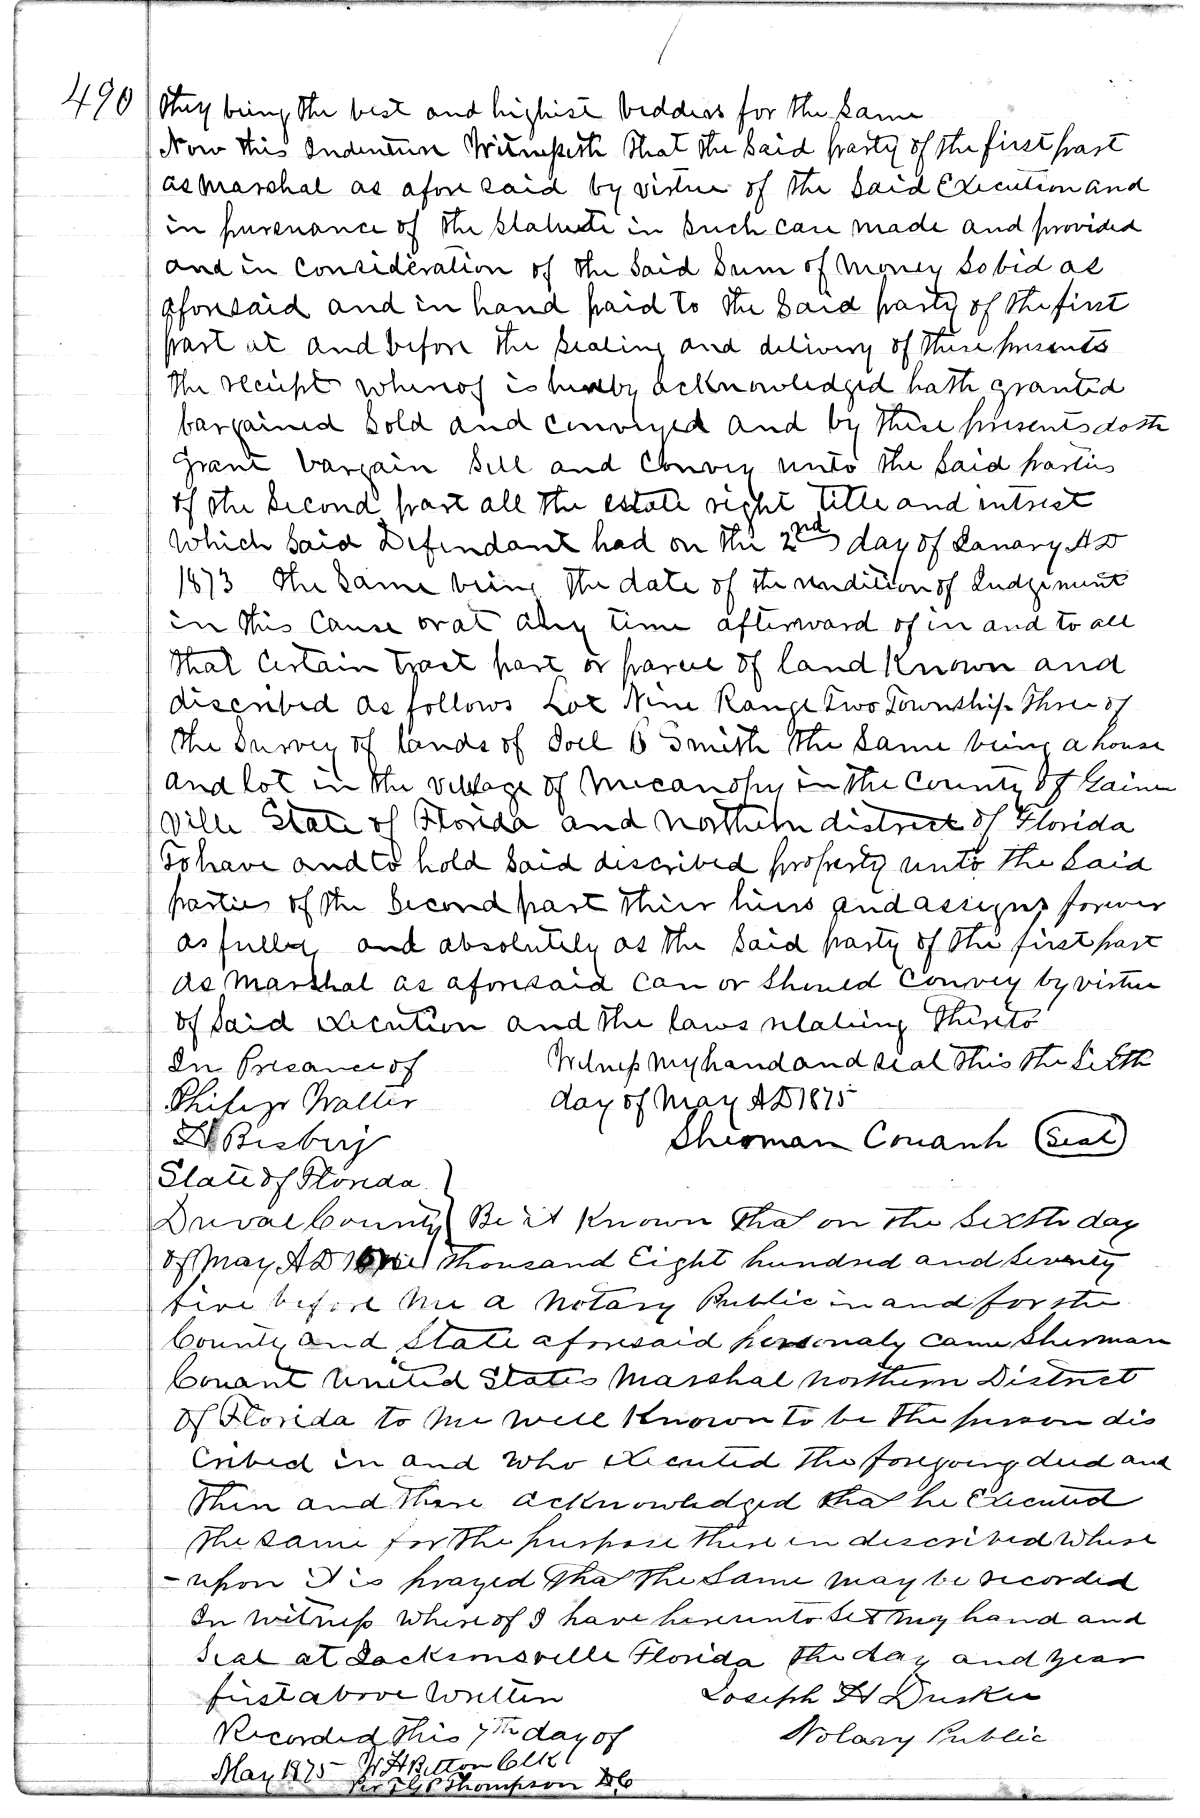 490
they being the best and highist bedders for the same
Now this Indenture Witnesseth that the said party of the first part
as Marshal as afore said by virtue of the said Execution and
in pursuance of the statute in such case made and provided
and in consideration of the said sum of money so bid as
aforesaid and in hand paid to the said party of the first
part at and before the sealing and delivery of these presents
the receipt whereof is hereby acknowledged hath granted
bargained sold and conveyed and by these presents doth
grant bargain sell and convey unto the said parties
of the second part all the estate right title and intrest
which said Defendant had on the 2nd day of Janary AD
1873 the same being the date of the rendition of Judgement
in this cause or at any time afterward of in and to all
that certain tract part or parcel of land known and
discribed as follows Lot Nine Range Two Township Three of
the survey of lands of Joel B Smith the same being a house
and lot in the village of Micanopy in the County of Gaines
ville State of Florida and northern district of Florida
To have and to hold said discribed property unto the said
parties of the second part thier hiers and assigns forever
as fully and absolutely as the said party of the first part
as Marshal as aforesaid can or should convey by virtue
of said execution and the laws relating thereto
In Presance of Witness my hand and seal this the Sixth
Philip Walter day of May AD 1875
H Bisbery Sherman Conanh (Seal)
State of Florida
Duval County } Be it Known that on the Sixth day
of May AD One thousand Eight hundred and seventy
five before me a Notary Public in and for the
County and State aforesaid personaly came Sherman
Conant United States Marshal northern District
of Florida to me well Known to be the person dis
cribed in and who executed the foregoing deed and
then and there acknowledged that he Executed
the same for the purpose there in described where
-upon it is prayed that the same may be recorded
In witness where of I have hereunto set my hand and
seal at Jacksonsville Florida the day and year
first above written Joseph H Durkee
Recorded this 7th day of Notary Public
May 1875 Clk
Per Thompson DC